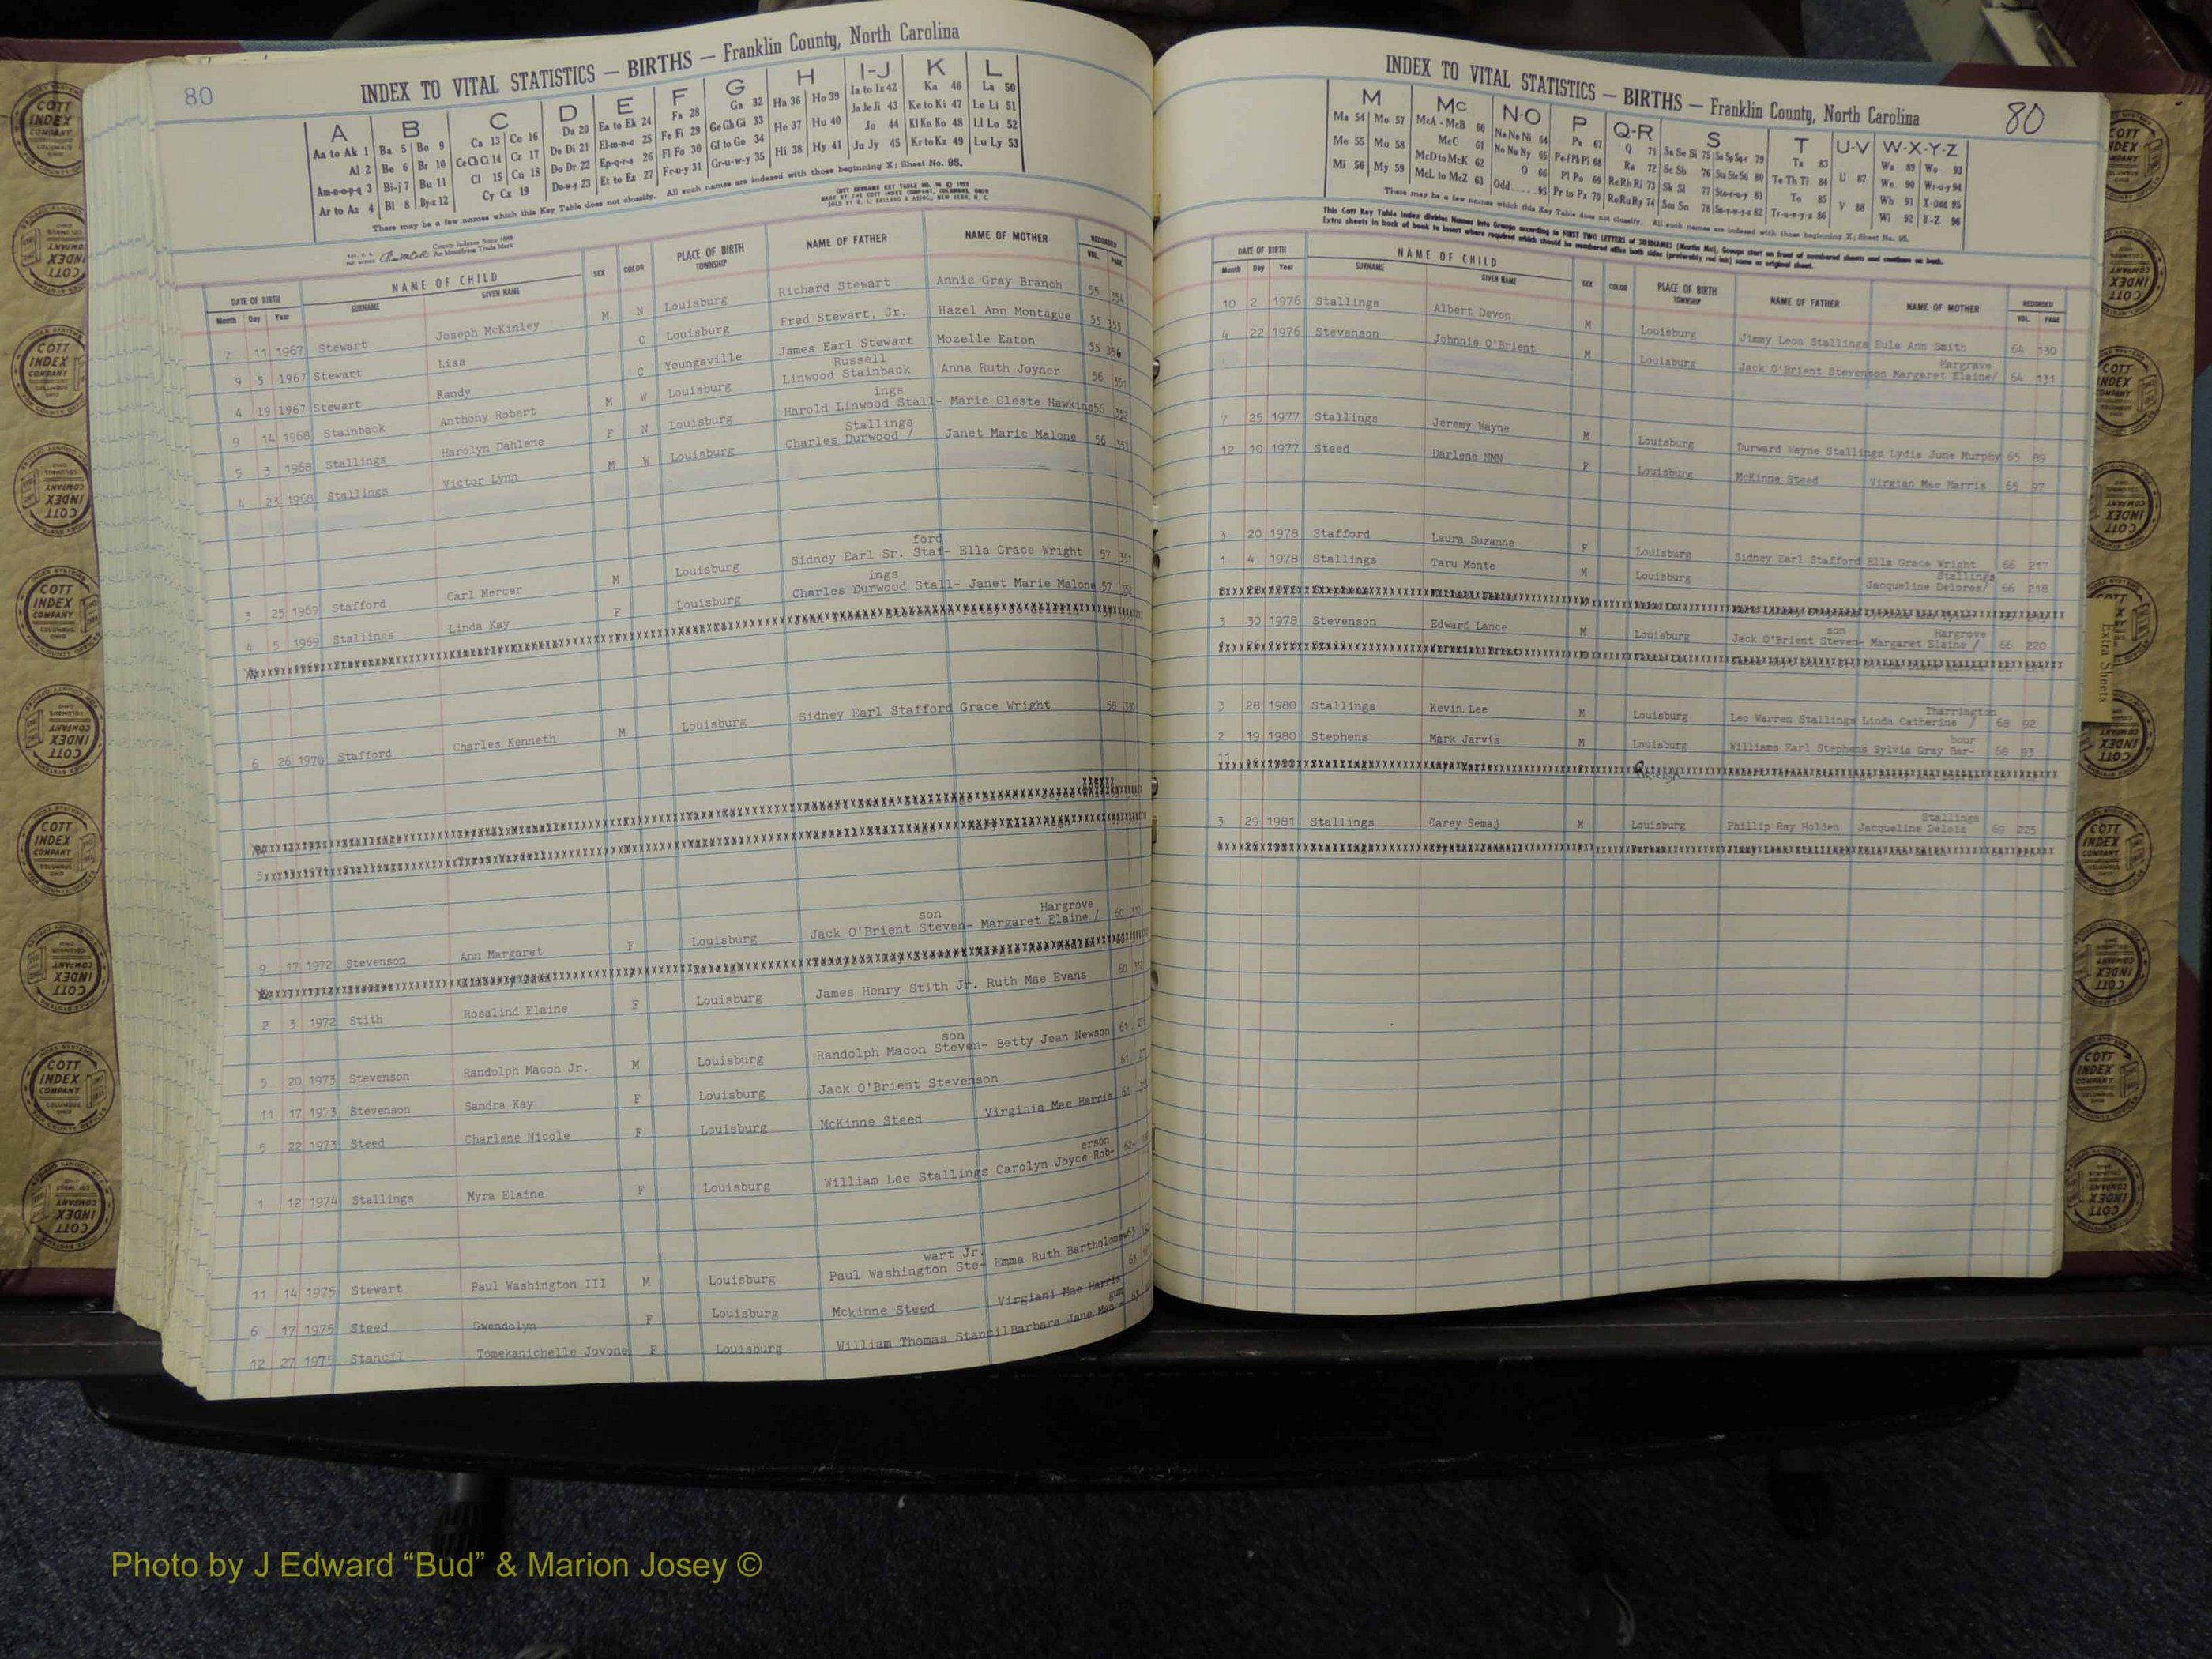 80
INDEX TO VITAL STATISTICS — BIRTHS — Franklin County, North Carolina
A B C D E F G H I-J K L
Aa to Ak 1 Ba 5 Bo 9 Ca 13 Co 16 Da 20 Ea to Ek 24 Fa 28 Ga 32 Ha 36 Ho 39 Ia to Iz 42 Ka 46 La 50
Al 2 Be 6 Br 10 Ce Ch Ci 14 Cr 17 De Di 21 El-m-n-o 25 Fe Fi 29 Ge Gh Gi 33 He 37 Hu 40 Ja Je Ji 43 Ke to Ki 47 Le Li 51
Am-n-o-p-q 3 Bi-j 7 Bu 11 Cl 15 Cu 18 Do Dr 22 Ep-q-r-s 26 Fl Fo 30 Gl to Go 34 Hi 38 Hy 41 Jo 44 Kl Kn Ko 48 Ll Lo 52
Ar to Az 4 Bl 8 By-z 12 Cy Cz 19 Du-w-y 23 Et to Ez 27 Fr-u-y 31 Gr-u-w-y 35 Ju Jy 45 Kr to Kz 49 Lu Ly 53
There may be a few names which this Key Table does not classify. All such names are indexed with those beginning X; Sheet No. 95.
County Indexes Since 1888
An Identifying Trade Mark
DATE OF BIRTH NAME OF CHILD SEX COLOR PLACE OF BIRTH TOWNSHIP NAME OF FATHER NAME OF MOTHER RECORDED
Month Day Year SURNAME GIVEN NAME VOL. PAGE
7 11 1967 Stewart Joseph McKinley M N Louisburg Richard Stewart Annie Gray Branch 55 354
9 5 1967 Stewart Lisa C Louisburg Fred Stewart, Jr. Hazel Ann Montague 55 355
4 19 1967 Stewart Randy C Youngsville James Earl Stewart Mozelle Eaton 55 356
Russell
9 14 1968 Stainback Anthony Robert M W Louisburg Linwood Stainback Anna Ruth Joyner 56 351
ings
5 3 1968 Stallings Harolyn Dahlene F N Louisburg Harold Linwood Stall- Marie Cleste Hawkins 56 352
Stallings
4 23 1968 Stallings Victor Lynn M W Louisburg Charles Durwood / Janet Marie Malone 56 353
ford
3 25 1969 Stafford Carl Mercer M Louisburg Sidney Earl Sr. Staf- Ella Grace Wright 57 351
ings
4 5 1969 Stallings Linda Kay F Louisburg Charles Durwood Stall- Janet Marie Malone 57 352
6 26 1970 Stafford Charles Kenneth M Louisburg Sidney Earl Stafford Grace Wright 58
son Hargrove
9 17 1972 Stevenson Ann Margaret F Louisburg Jack O'Brient Steven- Margaret Elaine / 60
2 3 1972 Stith Rosalind Elaine F Louisburg James Henry Stith Jr. Ruth Mae Evans 60
son
5 20 1973 Stevenson Randolph Macon Jr. M Louisburg Randolph Macon Steven- Betty Jean Newson 61
11 17 1973 Stevenson Sandra Kay F Louisburg Jack O'Brient Stevenson 61
5 22 1973 Steed Charlene Nicole F Louisburg McKinne Steed Virginia Mae Harris 61
erson
1 12 1974 Stallings Myra Elaine F Louisburg William Lee Stallings Carolyn Joyce Rob- 62
wart Jr.
11 14 1975 Stewart Paul Washington III M Louisburg Paul Washington Ste- Emma Ruth Bartholomew 63
6 17 1975 Steed Gwendolyn F Louisburg Mckinne Steed Virgiani Mae Harris 63
gum
12 27 1975 Stancil Tomekanichelle Jovone F Louisburg William Thomas Stancil Barbara Jane Man- 63
INDEX TO VITAL STATISTICS — BIRTHS — Franklin County, North Carolina
80
M Mc N-O P Q-R S T U-V W-X-Y-Z
Ma 54 Mo 57 McA - McB 60 Na Ne Ni 64 Pa 67 Q 71 Sa Se Si 75 79 Ta 83 U 87 Wa 89 Wo 93
Me 55 Mu 58 McC 61 No Nu Ny 65 Pe-f Ph Pi 68 Ra 72 Sc Sh 76 80 Te Th Ti 84 We 90 Wr-u-y 94
Mi 56 My 59 McD to McK 62 O 66 Pl Po 69 Re Rh Ri 73 Sk Sl 77 81 To 85 V 88 Wh 91 X-Odd 95
McL to McZ 63 Odd 95 Pr to Pz 70 Ro Ru Ry 74 Sm Sn 78 82 Tr-u-w-y-z 86 Wi 92 Y-Z 96
There may be a few names which this Key Table does not classify. All such names are indexed with those beginning X; Sheet No. 95.
This Cott Key Table Index divides Names into Groups according to FIRST TWO LETTERS of SURNAMES (Martin Ma). Groups start on front of numbered sheets and continue on back.
Extra sheets in back of book to insert where required which should be numbered alike both sides (preferably red ink) same as original sheet.
DATE OF BIRTH NAME OF CHILD SEX COLOR PLACE OF BIRTH TOWNSHIP NAME OF FATHER NAME OF MOTHER RECORDED
Month Day Year SURNAME GIVEN NAME VOL. PAGE
10 2 1976 Stallings Albert Devon M Louisburg Jimmy Leon Stallings Eula Ann Smith 64 130
Hargrave
4 22 1976 Stevenson Johnnie O'Brient M Louisburg Jack O'Brient Stevenson Margaret Elaine/ 64 131
7 25 1977 Stallings Jeremy Wayne M Louisburg Durward Wayne Stallings Lydia June Murphy 65 89
12 10 1977 Steed Darlene NMN F Louisburg McKinne Steed Virgian Mae Harris 65 97
3 20 1978 Stafford Laura Suzanne F Louisburg Sidney Earl Stafford Ella Grace Wright 66 217
Stallings
1 4 1978 Stallings Taru Monte M Louisburg Jacqueline Delorez/ 66 218
son Hargrove
3 30 1978 Stevenson Edward Lance M Louisburg Jack O'Brient Steven- Margaret Elaine / 66 220
Tharrington
3 28 1980 Stallings Kevin Lee M Louisburg Leo Warren Stallings Linda Catherine / 68 92
bour
2 19 1980 Stephens Mark Jarvis M Louisburg Williams Earl Stephens Sylvia Gray Bar- 68 93
Stallings
3 29 1981 Stallings Carey Semaj M Louisburg Phillip Ray Holden Jacqueline Delois 69 225
Extra Sheets
COTT INDEX COMPANY
Photo by J Edward “Bud” & Marion Josey ©